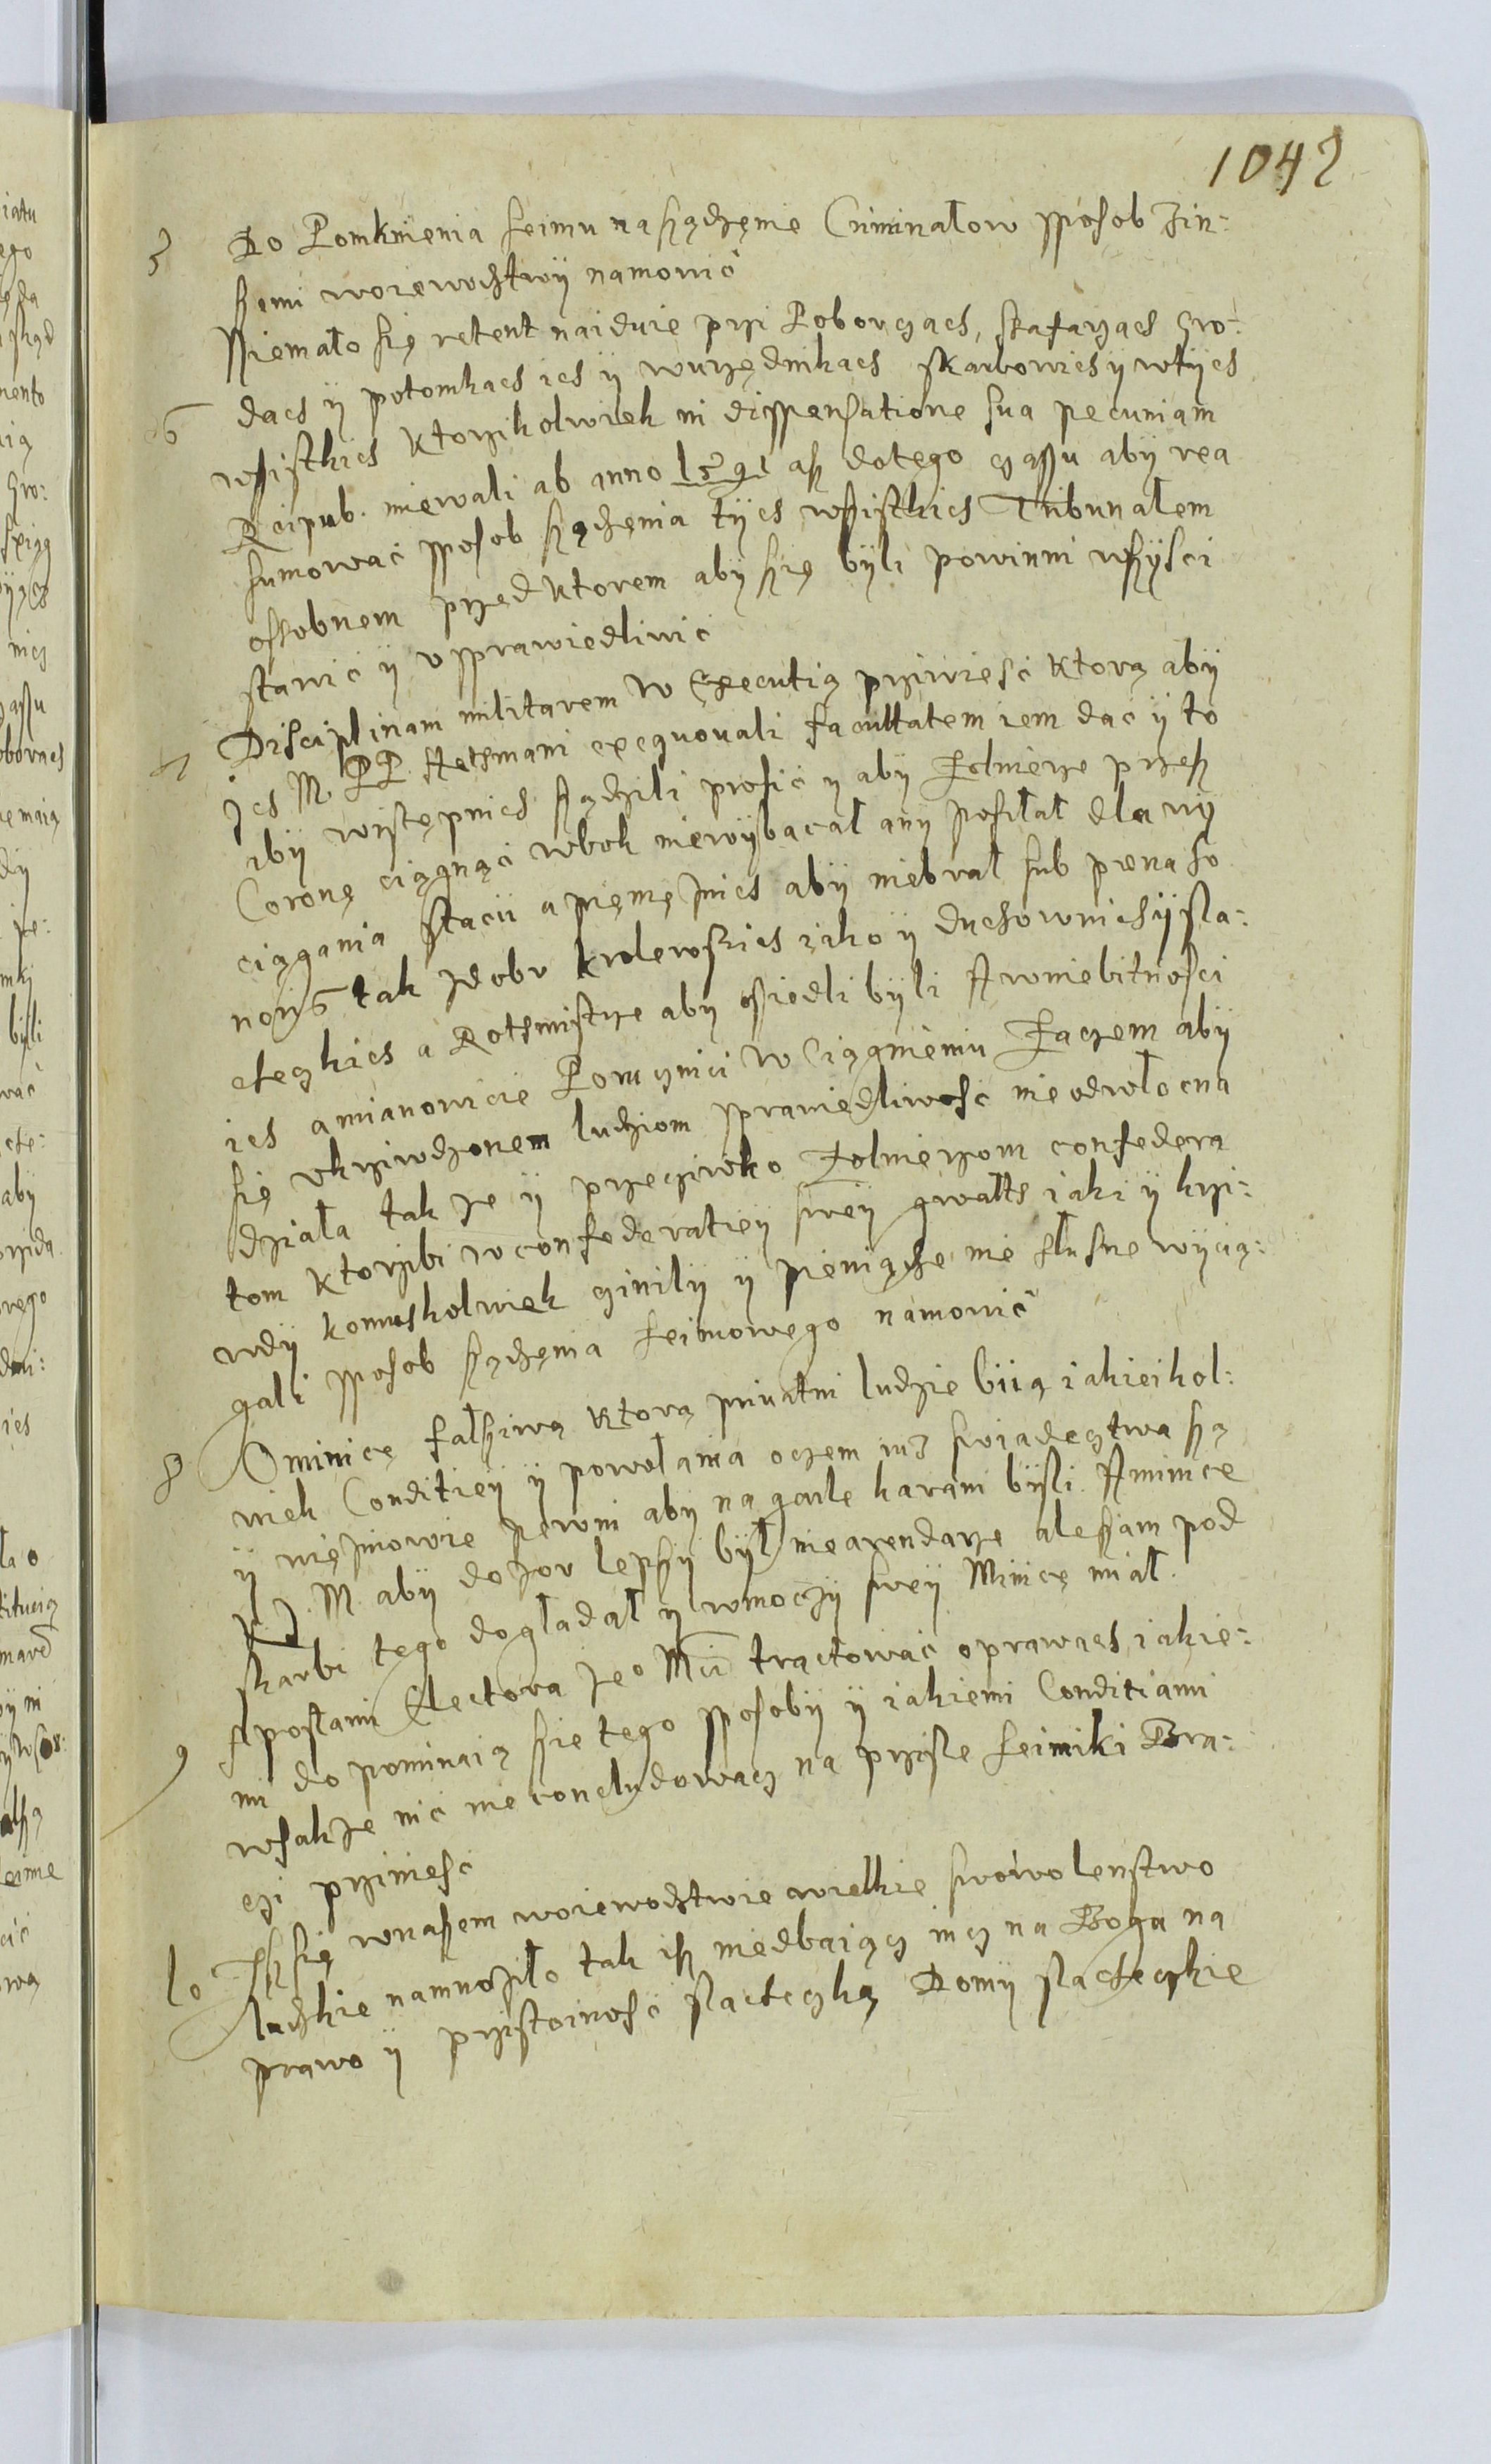 1042
5 Do Pomknienia seimu na sządzęnie Criminałow sposob zin:
szemi woiewodztwÿ namowić
6 Niemało się retent naiduie przi Poborczach, skafarzach hro:
dach ÿ potomkach ich ÿ wurzędnikach skarbowich ÿ wtÿch
wszistkich ktorzikolwiek in dispensatione sua pecuniam
Reipub. miewali ab anno 1591 asz dotego czassu abÿ rea
sumować sposob sządzenia tÿch wszistkich Tribunałem
ossobnem przed ktorem abÿ szię bÿli powinni wszÿsci
stawić ÿ usprawiedliwić
7 Disciplinam militarem w Executią prziwiesć ktorą abÿ
Jch M. PP. Hetmani exequowali facultatem iem dac ÿ to
abÿ wistępnich sządzili prosić ÿ abÿ żolnierze przesz
Coronę ciągnąć wbok niewÿbacał anÿ posiłał dla wÿ
ciągania stacii a pięnięznich abÿ niebrał sub pęna fo
noris tak zdobr krolewskich iako ÿ duchownich ÿ sla:
checzkich a Rotmistrze abÿ osiedli bÿli A w niebitnosci
ich a mianowicie Porucznici w Ciągnieniu Zaczem abÿ
się ukrziwdzonem ludziom sprawiedliwosć nieodwłocna
działa tak ze ÿ przeciwko żolnierzom confedera
tom ktorzibi w confederatieÿ sweÿ gwałtÿ iaki ÿ krzi:
wdÿ komuszkolwiek cziniłÿ ÿ pieniądze nie słusne wÿcią:
gali sposob sządzęnia seimowego namowić
8 O minicę falsziwą ktorą priuatni ludzie biią iakieikol:
wiek Conditieÿ ÿ powołania oczem iuż swiadectwa są
ÿ więzniowie pewni abÿ na garle karani bÿli. A minice
K. J. M abÿ dozor lepszÿ bÿł nie arendarze ale sam pod
skarbi tego dogladał ÿ wmoczÿ sweÿ Minicę miał.
9 A posłami Electora Jeo Mci tractować o prawach iakie:
mi do pominaią szie tego sposobÿ ÿ iakiemi Conditiami
wsakze nic nie concludowacz na prziste seimiki Bra:
czi prziniesć
10 Isz się wnaszem woiewodztwie wielkie swowolenstwo
ludzkie namnoziło tak isz niedbaiącz incz na Boga na
prawo ÿ przistoinosć slacheczką Domÿ slacheczkie